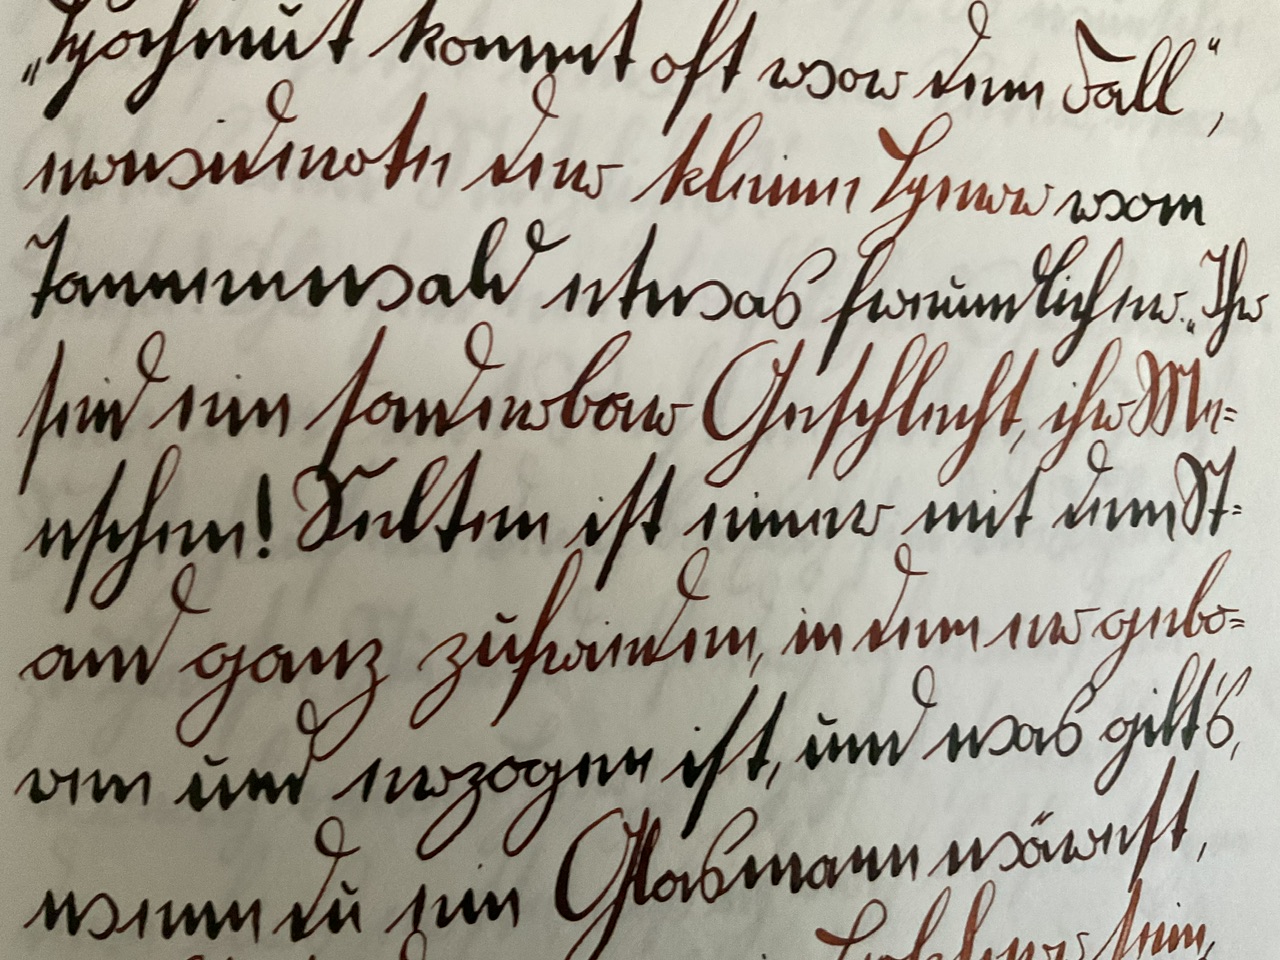 „Hochmut kommt oft vor dem Fall",
erwiderte der kleine Herr vom
Tannenwald etwas freundlicher. „Ihr
seid ein sonderbar Geschlecht, ihr Me-
nschen! Selten ist einer mit dem St-
and ganz zufrieden, in dem er gebo-
ren und erzogen ist, und was gilt's,
wenn du ein Glasmann wärest,
sein,